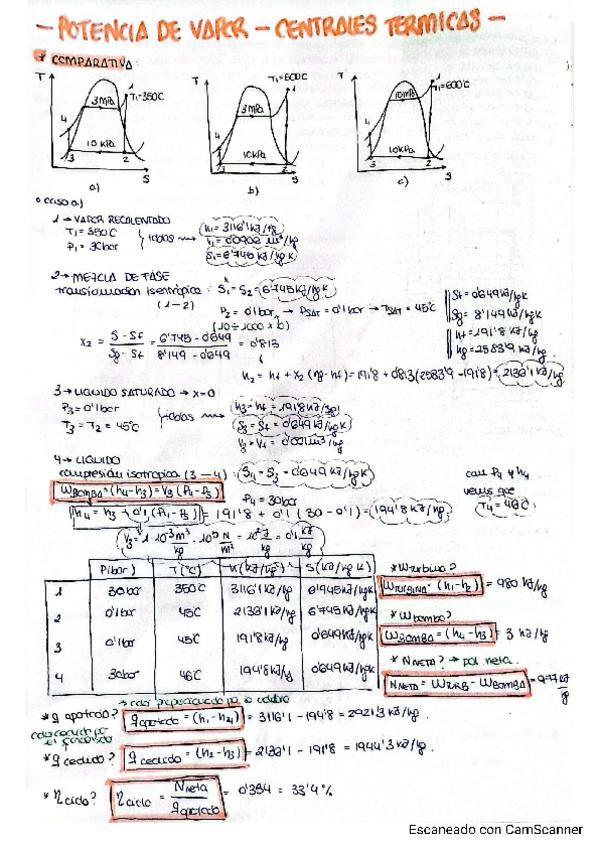 - POTENCIA DE VAPOR - CENTRALES TERMICAS -
* COMPARATIVA:
T T1=350°C 3 MPa 10 kPa 1 2 3 4 S a)
T T1=600°C 3 MPa 10 kPa 1 2 3 b)
T T1=600°C 10 MPa 10 kPa 1 2 3 c)
o caso a)
1 → VAPOR RECALENTADO
T1 = 350°C
P1 = 30 bar
tablas
h1 = 3116'1 kJ/kg
S1 = 6'745 kJ/kg K
2 → MEZCLA DE FASE
transformación isentrópica: S1 = S2 = 6'745 kJ/kg K
(1-2)
P2 = 0'1 bar → PSAT = 0'1 bar → TSAT = 45°C
(10 ÷ 1000 x 10)
Sf = 0'649 kJ/kg K
Sg = 8'149 kJ/kg K
hf = 191'8 kJ/kg
hg = 2583'9 kJ/kg
X2 = S - Sf / Sg - Sf = 6'745 - 0'649 / 8'149 - 0'649 = 0'813
h2 = hf + x2 (hg - hf) = 191'8 + 0'813 (2583'9 - 191'8) = 2136'1 kJ/kg
3 → LIQUIDO SATURADO → x=0
P3 = 0'1 bar
T3 = T2 = 45°C
tablas
h3 = hf = 191'8 kJ/kg
S3 = Sf = 0'649 kJ/kg K
V3 = Vf = 0'001 m³/kg
4 → LIQUIDO
compresión isotrópica (3-4): S4 = S3 = 0'649 kJ/kg K
WBOMBA = (h4 - h3) = V3 (P4 - P3)
P4 = 30 bar
con P4 y h4
vemos que
T4 = 46°C
h4 = h3 + 0'1 (P4 - P3) = 191'8 + 0'1 (30 - 0'1) = 194'8 kJ/kg
V3 = 1·10⁻³ m³/kg · 10⁵ N/m² = 10² J/kg = 0'1 kJ/kg
P(bar) T(°C) h(kJ/kg) S(kJ/kg K)
1 30 bar 350°C 3116'1 kJ/kg 6'745 kJ/kg K
2 0'1 bar 45°C 2136'1 kJ/kg 6'745 kJ/kg K
3 0'1 bar 45°C 191'8 kJ/kg 0'649 kJ/kg K
4 30 bar 46°C 194'8 kJ/kg 0'649 kJ/kg K
* Wturbina?
WTURBINA = (h1 - h2) = 980 kJ/kg
* Wbomba?
WBOMBA = (h4 - h3) = 3 kJ/kg
* NNETA? → pot neta.
NNETA = WTURB - WBOMBA = 977 kJ/kg
→ calor proporcionado por la caldera
* q aportado? q aportado = (h1 - h4) = 3116'1 - 194'8 = 2921'3 kJ/kg.
calor cedido por el
* q cedido? q cedido = (h2 - h3) = 2136'1 - 191'8 = 1944'3 kJ/kg.
* η ciclo? η ciclo = Nneta / q aportado = 0'334 = 33'4%
Escaneado con CamScanner